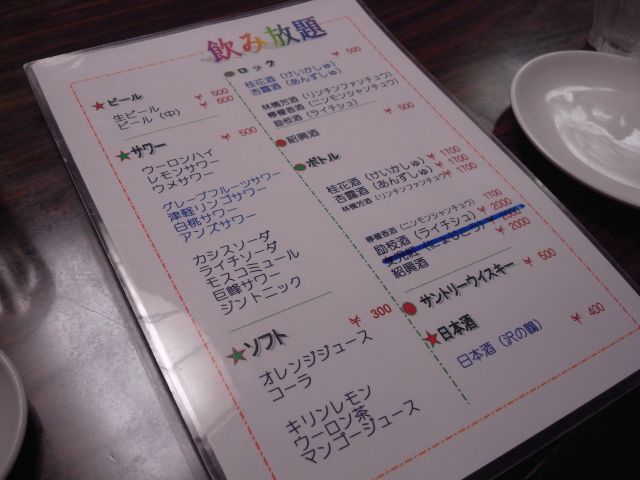 飲み放題
★ビール
生ビール ￥500
ビール（中） ￥600
★サワー ￥500
ウーロンハイ
レモンサワー
ウメサワー
グレープフルーツサワー
津軽リンゴサワー
白桃サワー
アンズサワー
カシスソーダ
ライチソーダ
モスコミュール
巨峰サワー
ジントニック
★ソフト ￥300
オレンジジュース
コーラ
キリンレモン
ウーロン茶
マンゴージュース
ロック ￥500
桂花酒（けいかしゅ）
杏露酒（あんずしゅ）
林檎方酒（リンチンファンチュウ）
檸檬香酒（ニンモンシャンチュウ）
茘枝酒（ライチシュ）
紹興酒 ￥500
ボトル
桂花酒（けいかしゅ） ￥1700
杏露酒（あんずしゅ） ￥1700
林檎方酒（リンチンファンチュウ） ￥1700
檸檬香酒（ニンモンシャンチュウ） 1700
茘枝酒（ライチシュ） ￥2000
紹興酒 ￥2000
サントリーウイスキー ￥500
★日本酒
日本酒（沢の鶴） ￥400